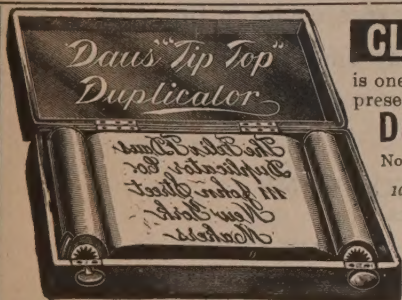 Daus' "Tip Top"
Duplicator
The Felix F. Daus
Duplicator Co.
111 John Street
New York
Makers
CL
is one
prese
D
No
10